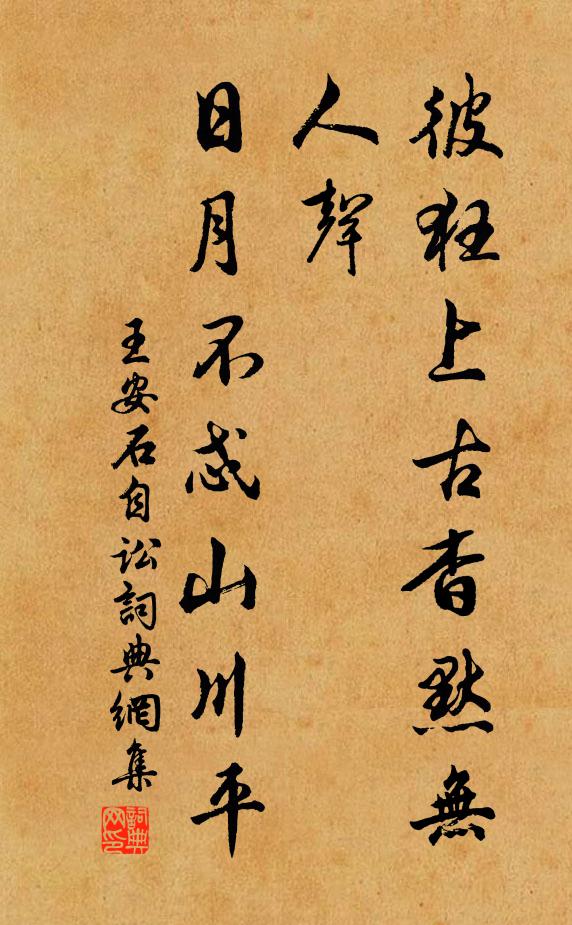 彼狂上古杳默無
人聲
日月不忒山川平
王安石自訟詞典網集
詞典网印